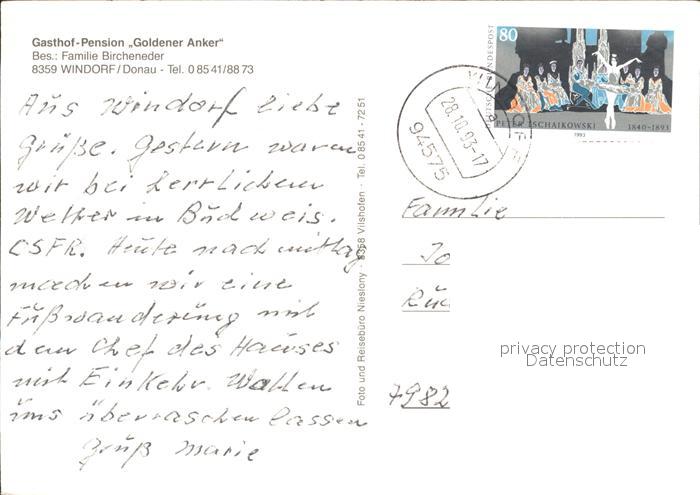 Gasthof-Pension „Goldener Anker“
Bes.: Familie Bircheneder
8359 WINDORF/Donau - Tel. 0 85 41/88 73
Aus Windorf liebe
Grüße. Gestern waren
wir bei herrlichem
Wetter in Budweis.
CSFR. Heute nachmittag
machen wir eine
Fußwanderung mit
dem Chef des Hauses
mit Einkehr. Wollen
uns überraschen lassen
Gruß Marie
Foto und Reisebüro Nieslony · 8358 Vilshofen · Tel. 0 85 41 - 72 51
80
DEUTSCHE BUNDESPOST
PETER TSCHAIKOWSKI 1840-1893
1993
WINDORF
a
28.10.93-17
94575
Familie
Jo
Rüc
7982
privacy protection
Datenschutz